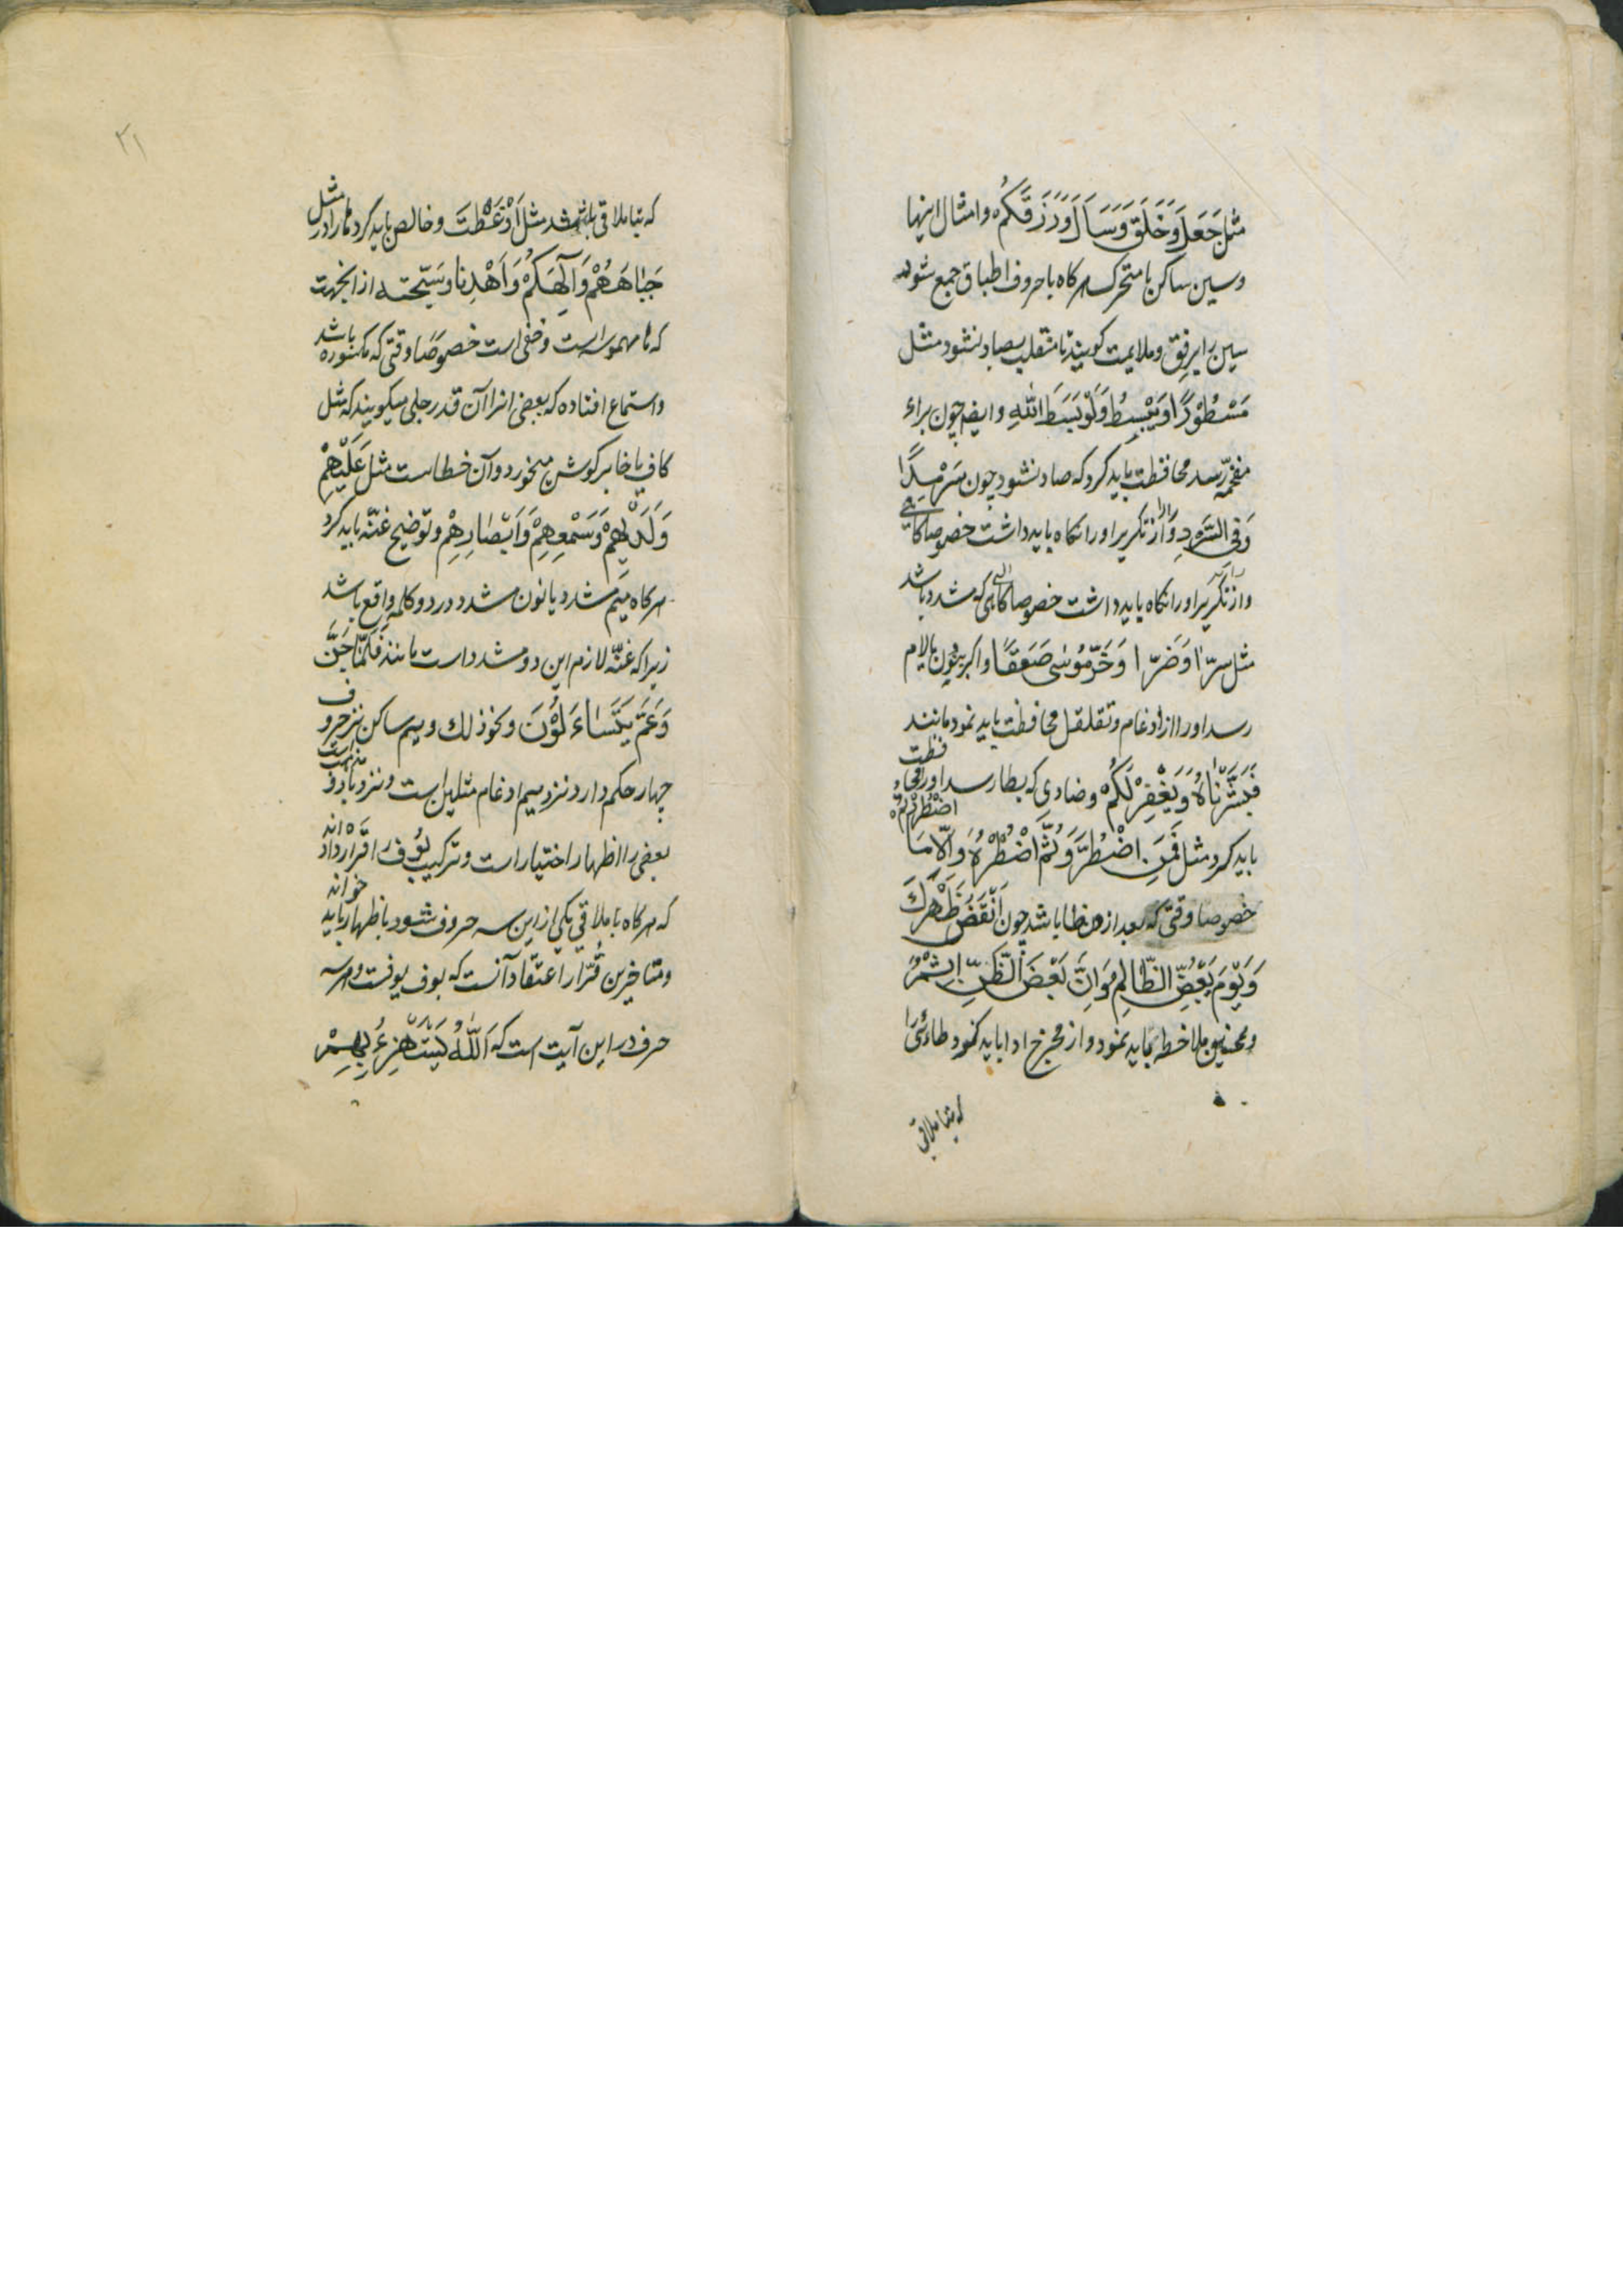 مثل جَعَلَ وَخَلَقَ وَسَأَلَ وَرَزَقَكُمْ وامثال اینها
وسین ساکن یا متحرک هرکاه باحروف اطباق جمع شود
سین را برفق وملایمت کویند تا منقلب بصاد نشود مثل
مَسْطُوْرًا وَيَبْسُطُ وَلَوْ بَسَطَ اللّٰهُ وایضا چون براء
مفخمه رسد محافظت باید کرد که صاد نشود چون سَرْمَدًا
وَفِی السَّرْدِ واز تکریر اورا نکاه باید داشت خصوصا کاهی
واز تکریر اورا نکاه باید داشت خصوصا کاهی که مشدد باشد
مثل سِرًّا وَضَرًّا وَخَرَّ مُوْسٰی صَعِقًا واکر چون بالام
رسد اورا از ادغام وتقلقل محافظت باید نمود مانند
فَبَشَّرْنَاهُ وَيَغْفِرْ لَكُمْ وضادی که بطا رسد اورا محافظت
باید کرد مثل فَمَنِ اضْطُرَّ وَثُمَّ اَضْطَرُّهُ وَاِلَّا مَا اضْطُرِرْتُمْ
خصوصا وقتی که بعد از ان ظا باشد چون اَنْقَضَ ظَهْرَكَ
وَيَوْمَ يَعَضُّ الظَّالِمُ وَاِنَّ بَعْضَ الظَّنِّ اِثْمٌ
وهمچنین ملاحظه باید نمود واز مخرج ادا باید نمود طاءئی را
که بتا ملاقی
۲۱
که بتا ملاقی باشد مثل اَوَعَظْتَ وخالص باید کرد ها را در مثل
جِبَاهُهُمْ وَاِلٰهُكُمْ وَاهْدِنَا وسَبِّحْهُ از انجهت
که ها مهموسه است وخفی است خصوصا وقتی که مکسوره باشد
واستماع افتاده که بعضی انرا آن قدر جلی میکویند که مثل
کاف یا خا بر کوش میخورد وآن خطاست مثل عَلَيْهِمْ
وَلَدَيْهِمْ وَسَمْعِهِمْ وَاَبْصَارِهِمْ وتوضیح غنّه باید کرد
هرکاه میم مشدد یا نون مشدد در دو کلمه واقع باشد
زیرا که غنّه لازم این دو مشدد است مانند فَلَمَّا جَنَّ
وَعَمَّ يَتَسَاءَلُوْنَ ونحو ذلك ومیم ساکن نزد حروف
چهار حکم دارد نزد میم ادغام مثلین است ونزد با و و ف
بعضی را اظهار اختیار است وترکیب بُوف قرار داده اند
که هرکاه با ملاقی یکی از این سه حروف شود باظهار باید خواند
ومتاخرین قُرّا را اعتقاد آنست که بوف یوفست وهر سه
حرف در این آیت است که اَللّٰهُ يَسْتَهْزِءُ بِهِمْ